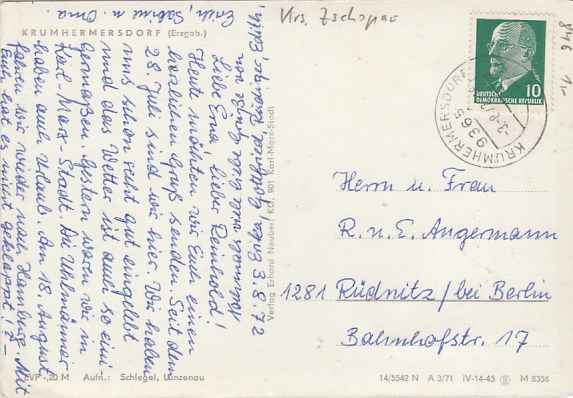 KRUMHERMERSDORF (Erzgeb.)
Krs. Zschopau
846 1.-
DEUTSCHE
DEMOKRATISCHE REPUBLIK
10
9365 KRUMHERMERSDORF
3.8.72
Liebe Erna, lieber Reinhold!
Heute möchten wir Euch einen
herzlichen Gruß senden. Seit dem
28. Juli sind wir hier. Wir haben
uns schon recht gut eingelebt
und das Wetter ist auch so eini-
germaßen. Gestern waren wir in
Karl-Marx-Stadt. Die Uhlmänner
haben auch Urlaub. Am 18. August
fahren wir wieder nach Hamburg. Mit
Euch hat es nicht geklappt!
Erich, Sabine u. Oma.
Verlag Erhard Neubert KG, 901 Karl-Marx-Stadt
Herrn u. Frau
R. u. E. Angermann
1281 Rüdnitz/bei Berlin
Bahnhofstr. 17
EVP -,20 M Aufn.: Schlegel, Lunzenau
14/5542 N A 3/71 IV-14-45 M 8356